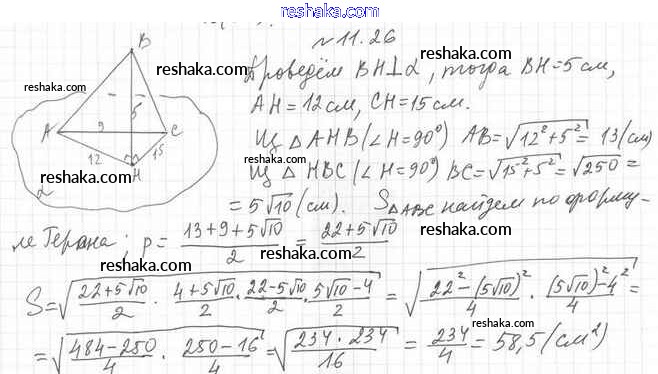 reshaka.com
№ 11.26
Проведём BH⊥α, тогда BH=5 см,
AH=12 см, CH=15 см.
Из △AHB (∠H=90°) AB=√(12²+5²)=13 (см)
Из △HBC (∠H=90°) BC=√(15²+5²)=√250=
=5√10 (см). S△ABC найдем по форму-
ле Герона; p=(13+9+5√10)/2=(22+5√10)/2
S=√((22+5√10)/2·(4+5√10)/2·(22-5√10)/2·(5√10-4)/2)=√((22²-(5√10)²)/4·((5√10)²-4²)/4)=
=√((484-250)/4·(250-16)/4)=√((234·234)/16)=234/4=58,5 (см²)
B
A
C
H
α
9
5
12
15
reshaka.com
reshaka.com
reshaka.com
reshaka.com
reshaka.com
reshaka.com
reshaka.com
reshaka.com
reshaka.com
reshaka.com
reshaka.com